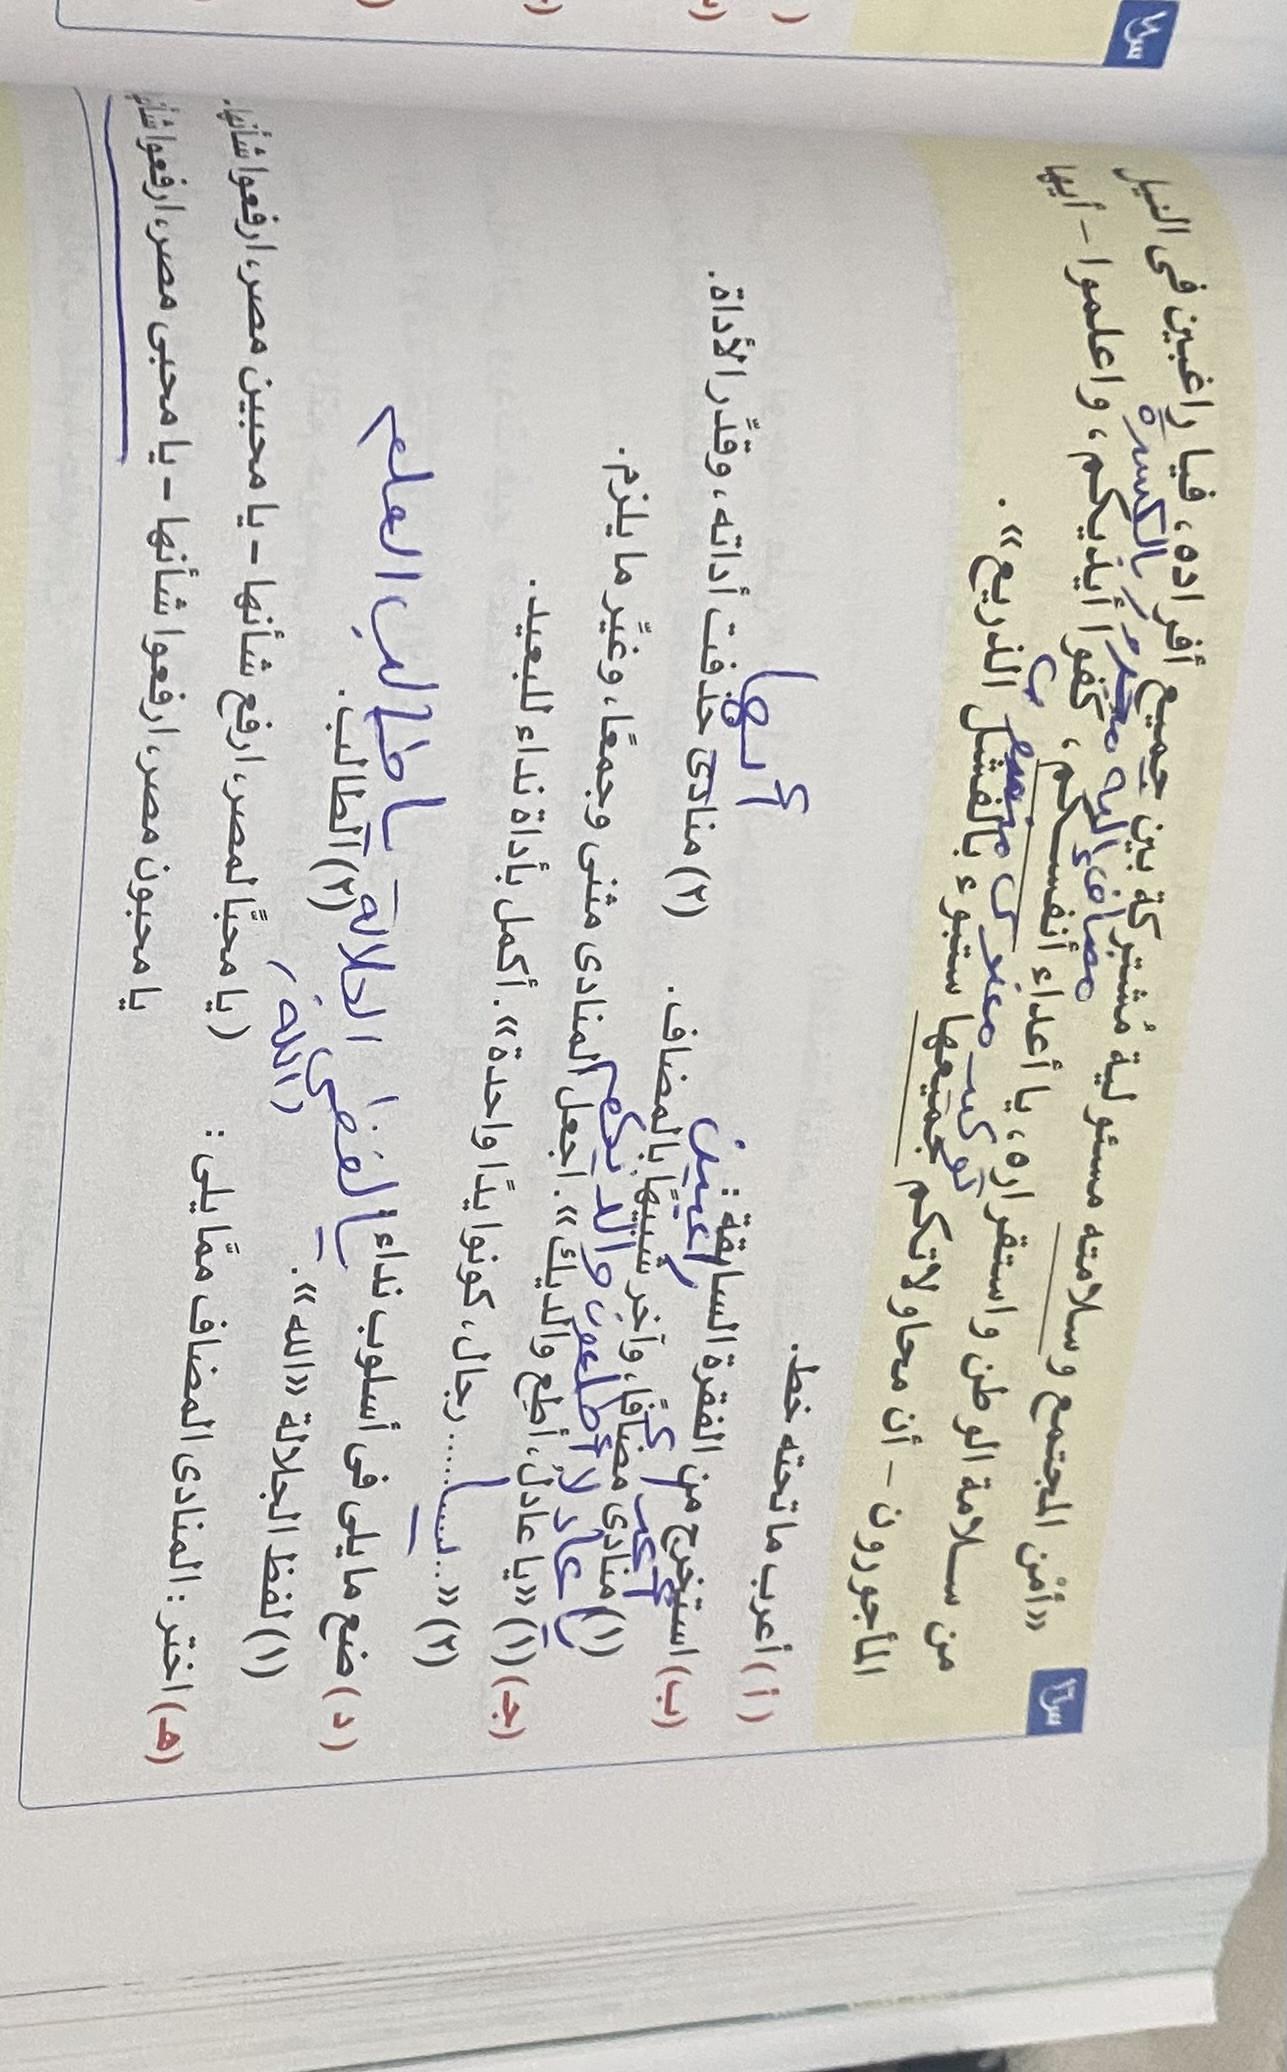 س٢
«أمن المجتمع وسلامته مسئولية مُشتركة بين جميع أفراده، فيا راغبين فى النيل
مضاف إليه مجرور بالكسرة
من سلامة الوطن واستقراره، يا أعداء أنفسكم، كفوا أيديكم، واعلموا - أيها
توكيد معنوى منصوب
المأجورون - أن محاولاتكم جميعها ستبوء بالفشل الذريع».
(أ) أعرب ما تحته خط.
(ب) استخرج من الفقرة السابقة:
راغبين
أيها
(١) منادى مضافًا، وآخر شبيهًا بالمضاف. (٢) منادى حذفت أداته، وقدَّر الأداة.
أعداء
(جـ) (١) «يا عادل، أطع والديك». اجعل المنادى مثنى وجمعًا، وغيِّر ما يلزم.
(٢) «..... رجال، كونوا يدًا واحدة». أكمل بأداة نداء للبعيد.
(د) ضع ما يلى فى أسلوب نداء:
الجلالة
يا طالب العلم
(١) لفظ الجلالة «الله».
(الله)
(٢) الطالب.
(هـ) اختر: المنادى المضاف ممَّا يلى:
(يا محبًّا لمصر، ارفع شأنها - يا محبين مصر، ارفعوا شأنها.
يا محبون مصر، ارفعوا شأنها - يا محبى مصر، ارفعوا شأنها